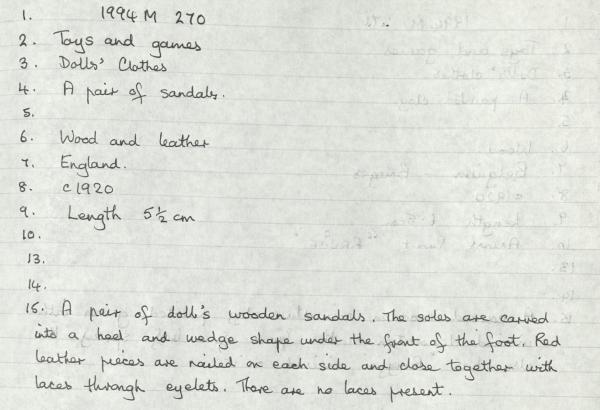 1. 1994 M 270
2. Toys and games
3. Dolls' Clothes
4. A pair of sandals.
5.
6. Wood and leather
7. England.
8. c1920
9. Length 5½ cm
10.
13.
14.
15. A pair of doll's wooden sandals. The soles are carved
into a heel and wedge shape under the front of the foot. Red
leather pieces are nailed on each side and close together with
laces through eyelets. There are no laces present.